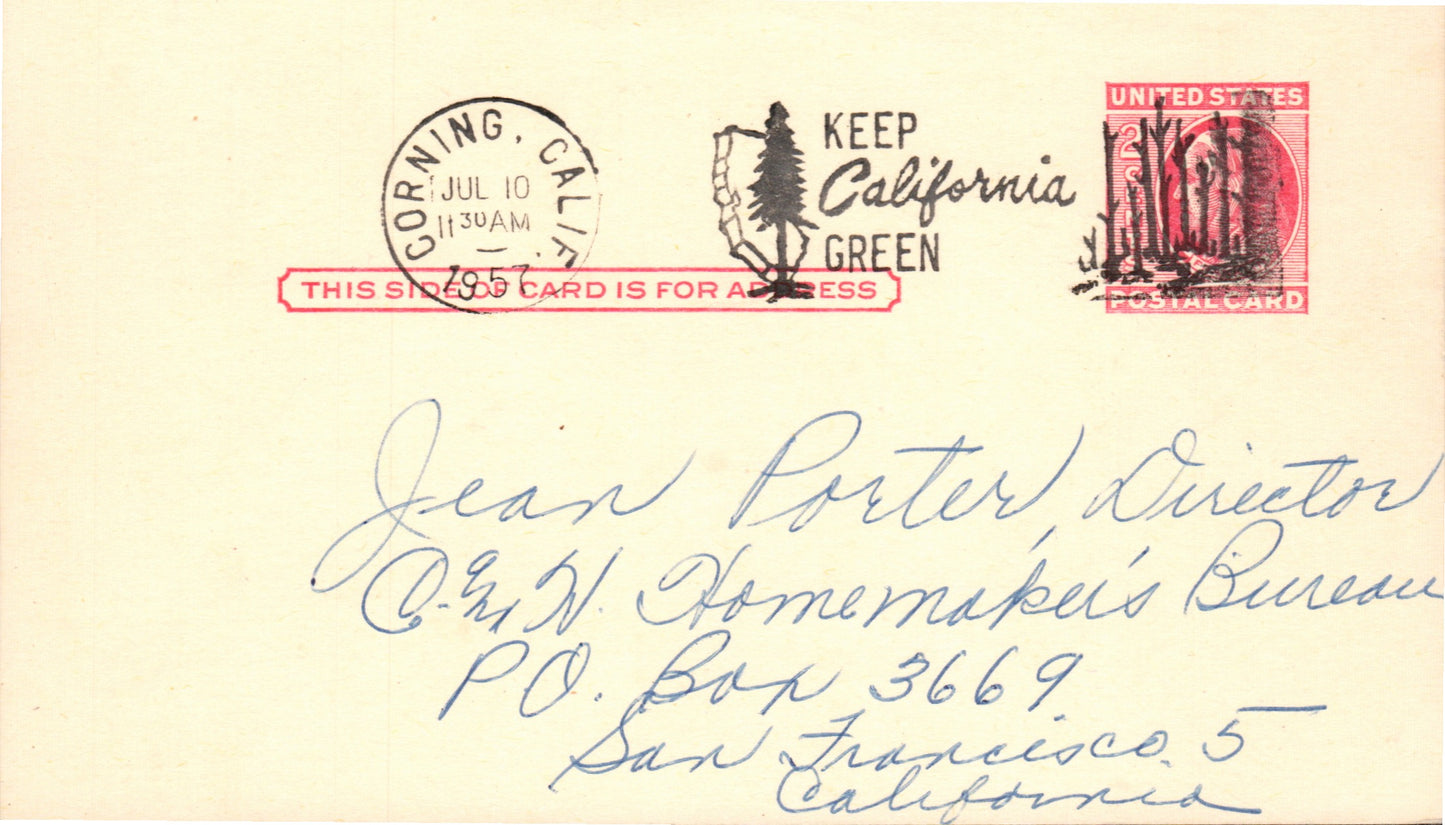 CORNING, CALIF.
JUL 10
11 30 AM
1957
KEEP
California
GREEN
UNITED STATES
POSTAL CARD
THIS SIDE OF CARD IS FOR ADDRESS
Jean Porter, Director
C. & H. Homemaker's Bureau
P.O. Box 3669
San Francisco 5
California